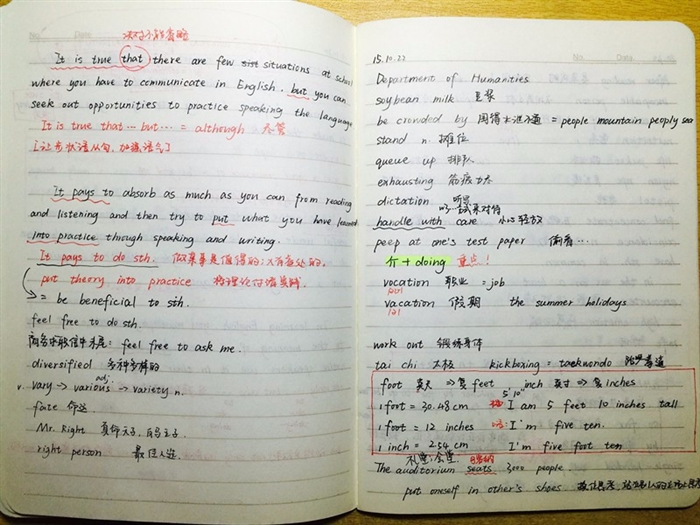 No. Date
决对不能省略
It is true that there are few situations at school
where you have to communicate in English, but you can
seek out opportunities to practice speaking the language
It is true that … but … = although 尽管
[让步状语从句, 加强语气]
It pays to absorb as much as you can from reading
and listening and then try to put what you have learned
into practice though speaking and writing.
It pays to do sth. 做某事是值得的;大有益处的.
put theory into practice 将理论付诸实践
= be beneficial to sth.
feel free to do sth.
feel free to ask me.
diversified 多种多样的
v. vary → various adj → variety n.
fate 命运
Mr. Right 真命天子, 白马王子
right person 最佳人选
No. Date
15.10.22
Department of Humanities
soybean milk 豆浆
be crowded by 围得水泄不通 = people mountain people sea
stand n. 摊位
queue up 排队
exhausting 筋疲力尽
dictation 听写
handle with care 小心轻放
peep at one's test paper 偷看…
介 + doing 重点!
vocation 职业 = job
vacation 假期 the summer holidays
work out 锻炼身体
tai chi 太极 kickboxing = taekwondo 跆拳道
foot 英尺 ⇒ 复 feet inch 英寸 ⇒ 复 inches
5'10"
1 foot = 30.48 cm I am 5 feet 10 inches tall
1 foot = 12 inches I'm five ten.
1 inch = 2.54 cm I'm five foot ten
礼堂
The auditorium seats 3000 people.
put oneself in other's shoes 换位思考